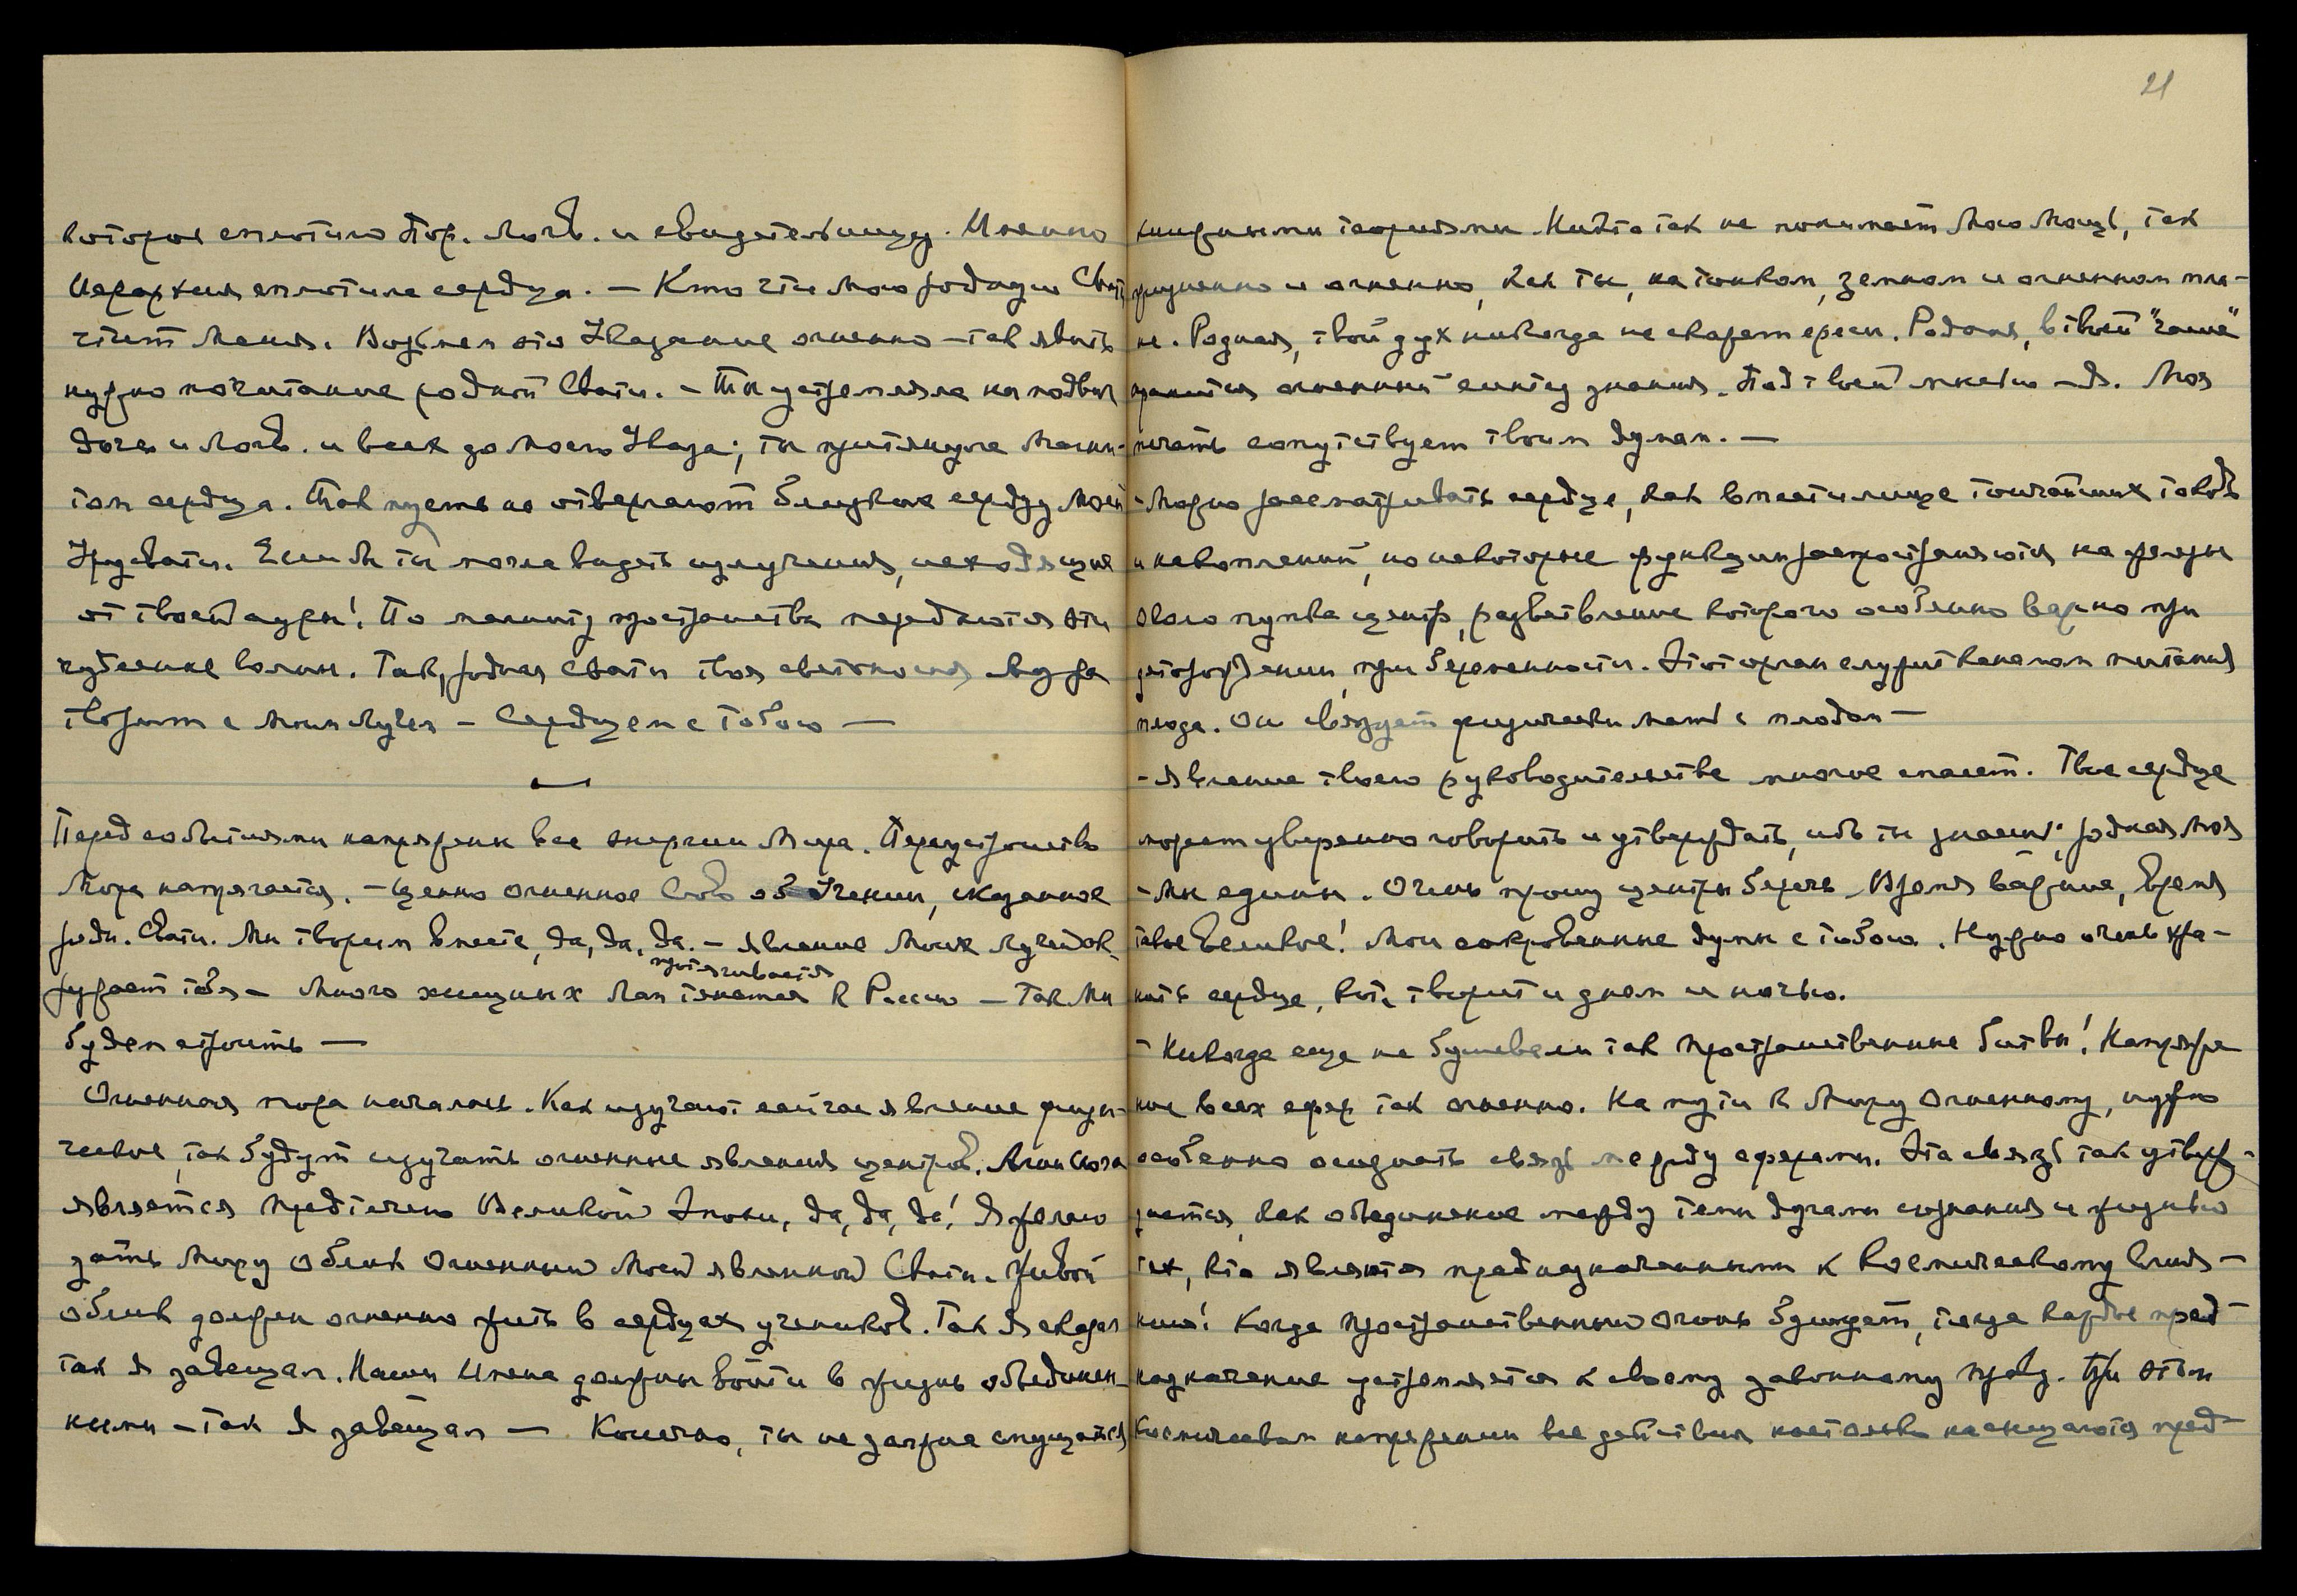 которое сплотило Пор. Логв. и свидетельницу. Именно
Иерархия сплотила сердца. — Кто чтит мою родную Свати
чтит Меня. Возьмем это Указание огненно — так явить
нужно почитание родной Свати. — Ты устремляла на подвиг
дочь и Логв. и всех до моего Указа; ты притянула Магни-
том сердца. Так пусть не отвергают близкие сердцу Моей
Урусвати. Если бы ты могла видеть излучения, исходящие
от твоей ауры! По магниту пространства передаются эти
чудесные волны. Так, родная Свати твоя светоносная
творит с Моим Лучем — Сердцем с Тобою —
Перед событиями напряжены все энергии Мира. Переустройство
Мира напрягается. — Ценно огненное Слово об Учении, сказанное
родн. Свати. Мы творим вместе, да, да, да. — явление Моих лучей ок-
ружает тебя — Много хищных лап тянется
протягивается
к России — Так Мы
будем строить —
Огненная пора началась. Как изучают сейчас явление физи-
ческое, так будут изучать огненные явления центров. Агни Йога
является предтечею Великой Эпохи, да, да, да! Я желаю
дать Миру облик Огненный Моей явленной Свати. Живой
облик должен огненно жить в сердцах учеников. Так Я сказал
так Я завещал. Наши Имена должны войти в жизнь объединен-
ными — так Я завещал — Конечно, ты не должна смущаться
21
книжными теориями. Никто так не понимает Мою Мощь, так
жизненно и огненно, как ты, на тонком, земном и огненном пла-
не. Родная, твой дух никогда не скажет ереси. Родная, в твоей "чаше"
хранится огненный синтез знания. Под твоей мыслью — Я. Моя
печать сопутствует твоим думам. —
— Можно рассматривать сердце, как вместилище тончайших токов
и накоплений, но некоторые функции распространяются на железы
около пупка центр, разветвление которого особенно важно при
деторождении, при беременности. Этот орган служит каналом питания
плода. Он связует физически мать с плодом —
— явление твоего руководительства многое спасет. Твое сердце
может уверенно говорить и утверждать, ибо ты знаешь, родная Моя
— Мы едины. Очень прошу центры беречь. Время важное, время
такое великое! Мои сокровенные думы с тобою. Нужно очень хра-
нить сердце, кот. творит и днем и ночью.
— Никогда еще не бушевали так пространственные битвы! Напряже
ние всех сфер так огненно. На пути к Миру Огненному, нужно
особенно осознать связь между сферами. Эта связь так утверж-
дается, как объединение между теми дугами сознания и жизнью
тех, кто являются предназначенными к Космическому слия-
нию! Когда пространственный огонь бушует, тогда каждое пред-
назначение устремляется к своему законному праву. При этом
Космическом напряжении все действия настолько насыщаются пред-